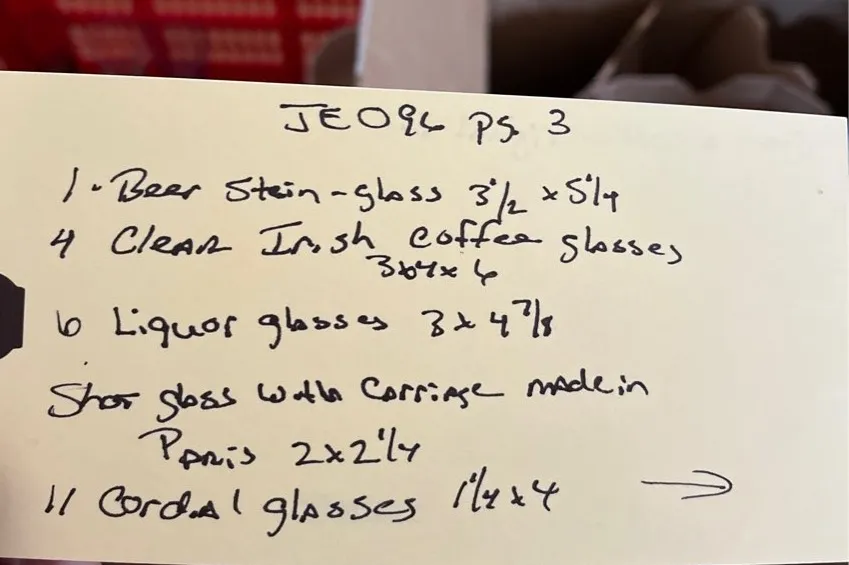 JE096 pg. 3
1 - Beer Stein - glass 3 1/2 x 5 1/4
4 Clear Irish coffee glasses
3 3/4 x 6
6 Liquor glasses 3 x 4 7/8
Shot glass with Carriage made in
Paris 2 x 2 1/4
11 Cordial glasses 1 1/4 x 4 →